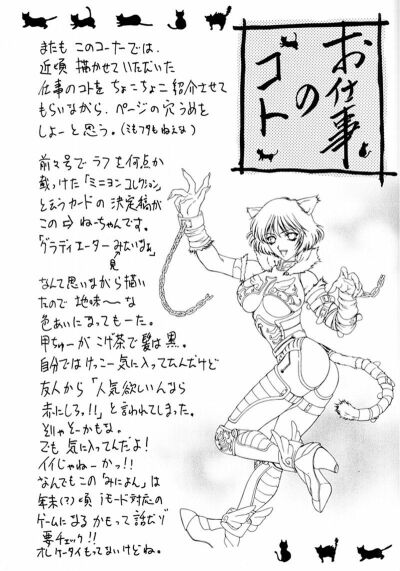 お仕事
の
コト
またも このコーナーでは、
近頃 描かせていただいた
仕事のコトをちょこちょこ 紹介させて
もらいながら、ページの穴うめを
しよーと思う。(ミもフタもねぇな)
前々号でラフを何点か
載っけた「ミニヨンコレクション」
と言うカードの 決定稿が
この ⇨ ねーちゃんです。
「グラディエーターみたいなぁ」
なんて思いながら描い
たので 地味〜な
色あいになってもーた。
甲ちゅーが こげ茶で髪は 黒。
自分ではけっこー気に入ってんだけど
友人から「人気欲しいんなら
赤にしろ!!」と言われてしまった。
そりゃそーかもな。
でも 気に入ってんだよ!
イイじゃねーかっ!!
なんでもこの「みによん」は
年末(?)頃 iモード対応の
ゲームになる かもって話だゾ
要チェック!!
オレケータイもってないけどね。